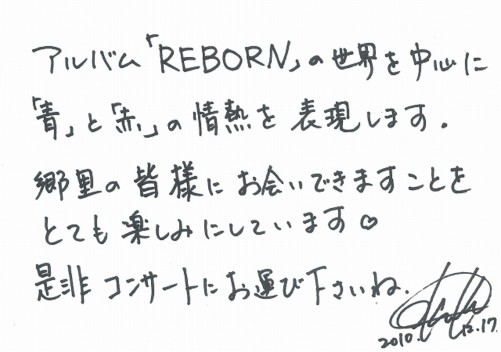 アルバム「REBORN」の世界を中心に
「青」と「赤」の情熱を表現します.
郷里の皆様にお会いできますことを
とても楽しみにしています♡
是非コンサートにお運び下さいね.
2010. 12.17